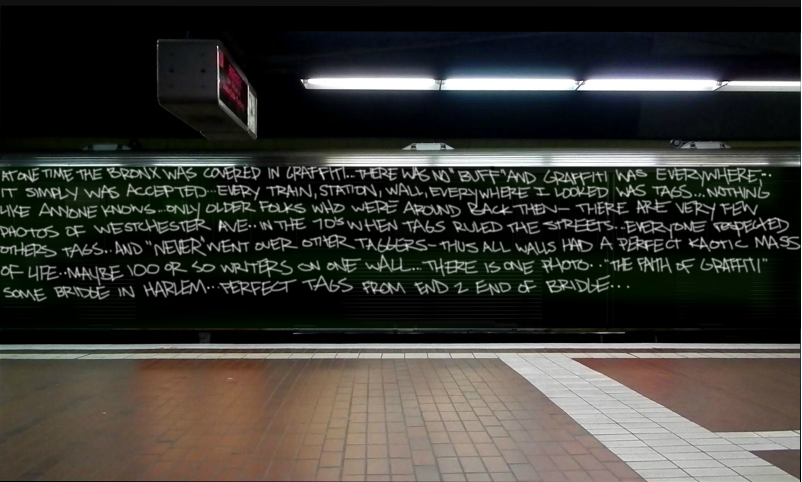 AT ONE TIME THE BRONX WAS COVERED IN GRAFFITI... THERE WAS NO "BUFF" AND GRAFFITI WAS EVERYWHERE...
IT SIMPLY WAS ACCEPTED... EVERY TRAIN, STATION, WALL, EVERYWHERE I LOOKED WAS TAGS... NOTHING
LIKE ANYONE KNOWS... ONLY OLDER FOLKS WHO WERE AROUND BACK THEN - THERE ARE VERY FEW
PHOTOS OF WESTCHESTER AVE... IN THE 70'S WHEN TAGS RULED THE STREETS... EVERYONE RESPECTED
OTHERS TAGS... AND "NEVER" WENT OVER OTHER TAGGERS - THUS ALL WALLS HAD A PERFECT KAOTIC MASS
OF LIFE... MAYBE 100 OR SO WRITERS ON ONE WALL... THERE IS ONE PHOTO... "THE FAITH OF GRAFFITI"
SOME BRIDGE IN HARLEM... PERFECT TAGS FROM END 2 END OF BRIDGE...